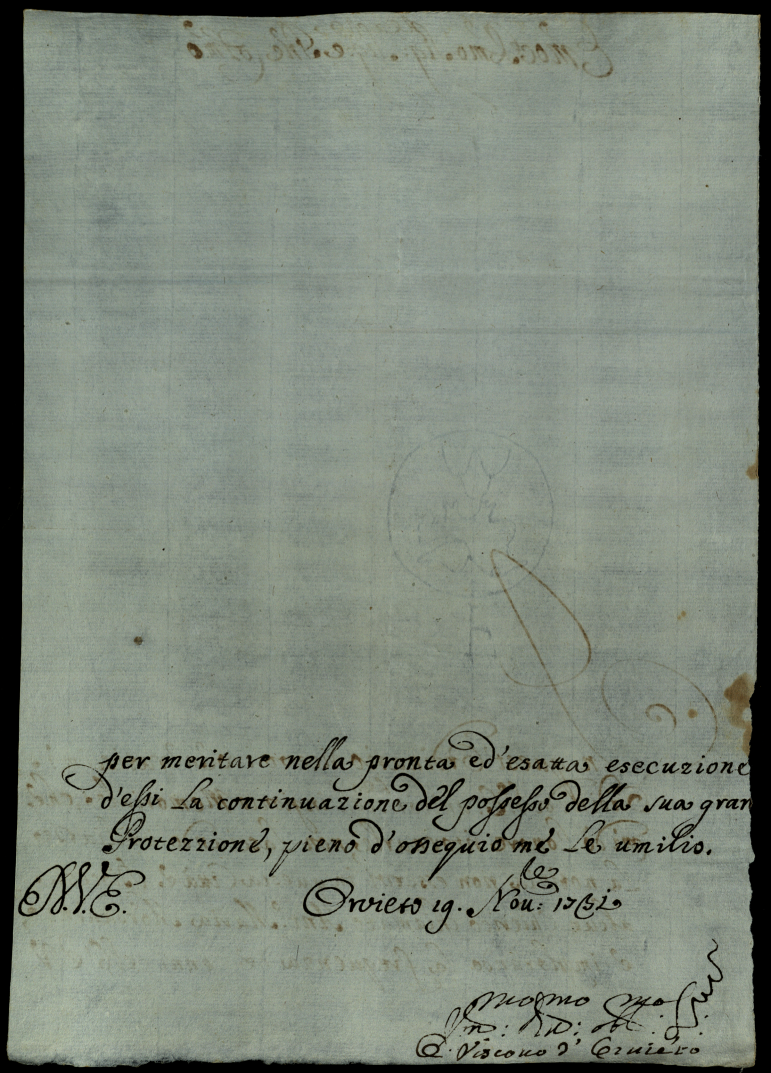 per meritare nella pronta ed'esatta esecuzione
d'essi La continuazione del possesso della sua gran
Protezzione, pieno d'ossequio me Le umilio.
D.V.E. Orvieto 19. Nou:bre
Vescouo d' Oruieto